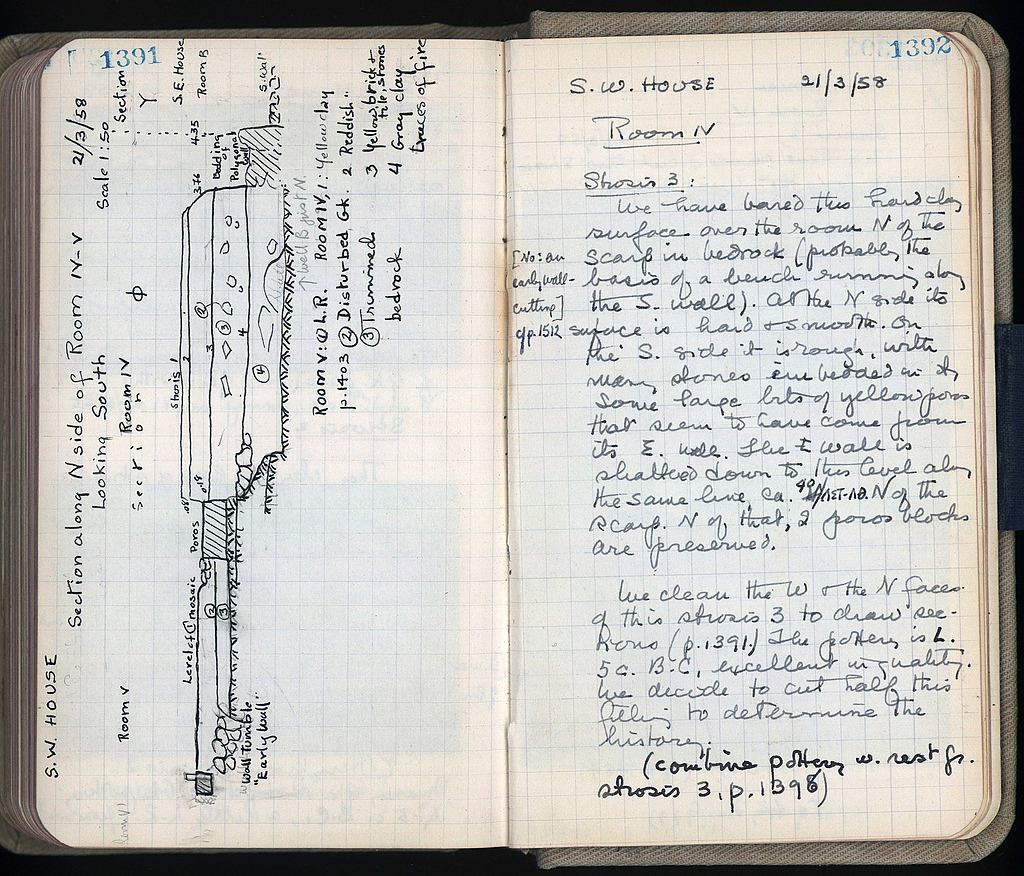 1391
S.W. HOUSE
Section along N side of Room IV-V 2/3/58
Looking South Scale 1:50
Section Φ Section Y
Room V Room IV S.E. House
Room B
Level of ① mosaic Poros Strosis 1 3.76 4.35
2
3
4
②
③
②
③
④
Bedding of Polygonal Wall
S. Wall
Wall Tumble
"Early Wall"
↑ Well B just N.
Room V: ① L.R. Room IV, 1: Yellow clay
p.1403 ② Disturbed Gk. 2 Reddish "
③ Trimmed bedrock 3 Yellow, brick + tile, stones
4 Gray clay
traces of fire
1392
S.W. HOUSE 21/3/58
Room IV
Strosis 3:
We have bared this hard clay
surface over the room N of the
scarp in bedrock (probably the
basis of a bench running along
the S. wall). At the N side its
surface is hard & smooth. On
the S. side it is rough, with
many stones embedded in it,
some large bits of yellow poros
that seem to have come from
its E. wall. The E wall is
shattered down to this level along
the same line, ca. N of the
scarp. N of that, 2 poros blocks
are preserved.
[No: an
early wall-
cutting]
cf p.1512
We clean the W & the N faces
of this strosis 3 to draw sec-
tions (p.1391.) The pottery is L.
5 c. B.C., excellent in quality.
We decide to cut half this
filling to determine the
history.
(combine pottery w. rest fr.
strosis 3, p.1396)